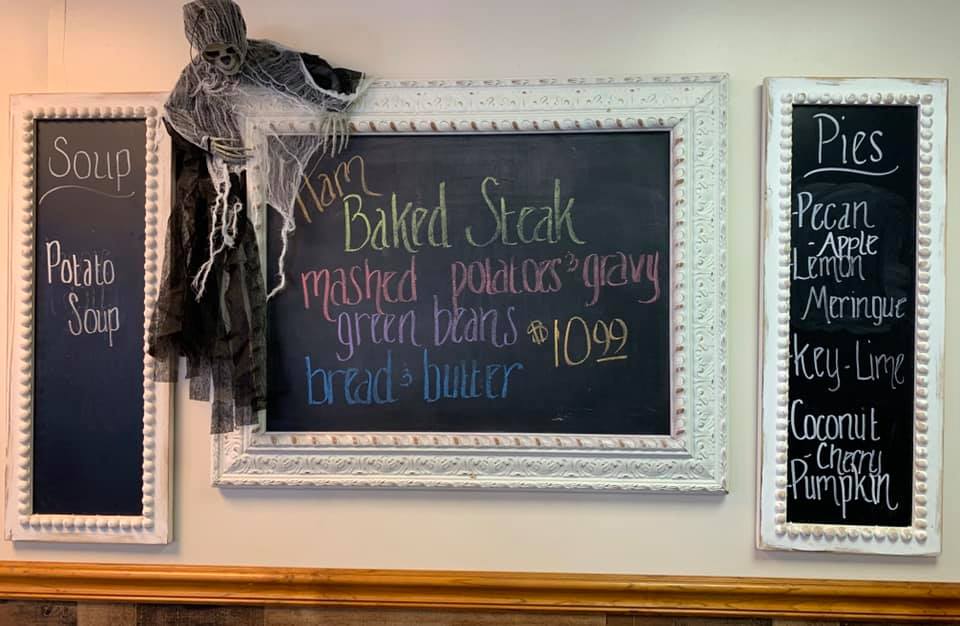 Soup
Potato
Soup
Ham
Baked Steak
mashed potatoes & gravy
green beans $10.99
bread & butter
Pies
-Pecan
-Apple
-Lemon
Meringue
-Key-Lime
Coconut
-Cherry
-Pumpkin